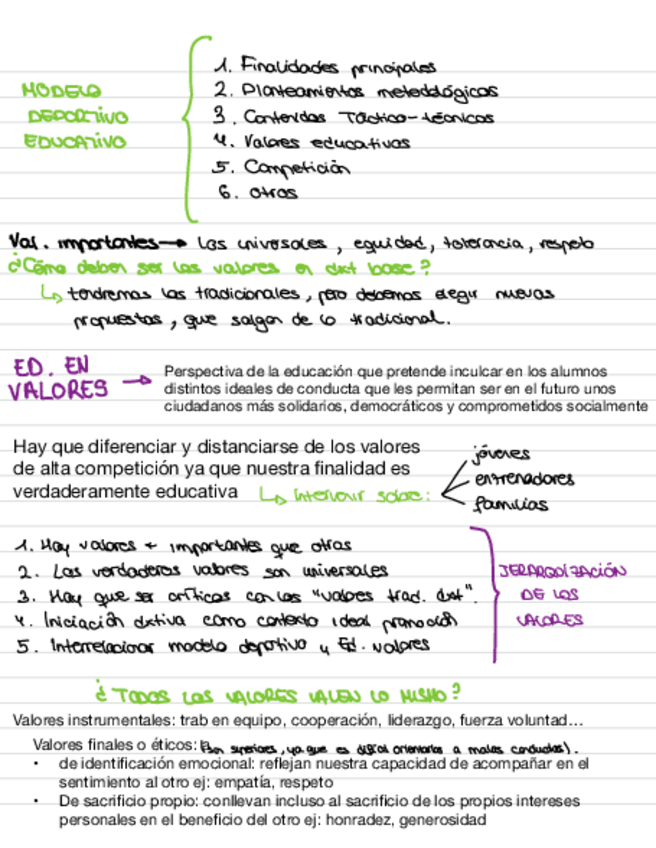 MODELO
DEPORTIVO
EDUCATIVO
1. Finalidades principales
2. Planteamientos metodológicos
3. Contenidos Táctico-técnicos
4. Valores educativos
5. Competición
6. otros
Val. importantes → Los universales, equidad, tolerancia, respeto
¿Cómo deben ser los valores en dxt base?
↳ tendremos los tradicionales, pero debemos elegir nuevas
propuestas, que salgan de lo tradicional.
ED. EN
VALORES →
Perspectiva de la educación que pretende inculcar en los alumnos
distintos ideales de conducta que les permitan ser en el futuro unos
ciudadanos más solidarios, democráticos y comprometidos socialmente
Hay que diferenciar y distanciarse de los valores
de alta competición ya que nuestra finalidad es
verdaderamente educativa
↳ intervenir sobre:
jóvenes
entrenadores
familias
1. Hay valores + importantes que otros
2. Los verdaderos valores son universales
3. Hay que ser críticos con los "valores trad. dxt".
4. Iniciación dxtiva como contexto ideal promoción
5. Interrelacionar modelo deportivo y Ed. valores
JERARQUIZACIÓN
DE LOS
VALORES
¿TODOS LOS VALORES VALEN LO MISMO?
Valores instrumentales: trab en equipo, cooperación, liderazgo, fuerza voluntad…
Valores finales o éticos: (son superiores, ya que es difícil orientarlos a malas conductas).
• de identificación emocional: reflejan nuestra capacidad de acompañar en el
sentimiento al otro ej: empatía, respeto
• De sacrificio propio: conllevan incluso al sacrificio de los propios intereses
personales en el beneficio del otro ej: honradez, generosidad